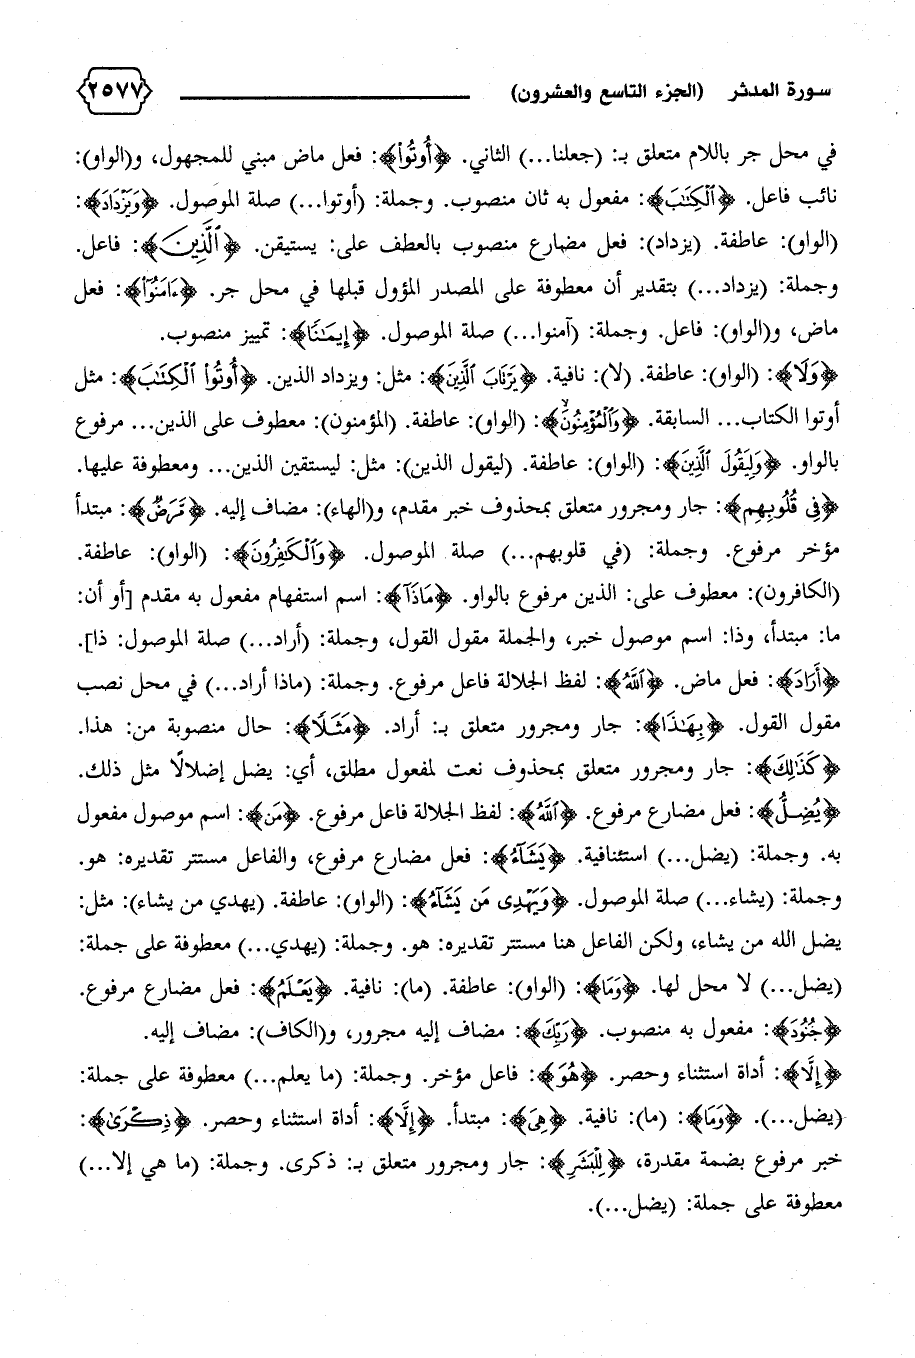 سورة المدثر (الجزء التاسع والعشرون) ٢٥٧٧
في محل جر باللام متعلق بـ: (جعلنا...) الثاني. ﴿أُوتُوا﴾: فعل ماض مبني للمجهول، و(الواو):
نائب فاعل. ﴿ٱلْكِتَٰبَ﴾: مفعول به ثان منصوب. وجملة: (أوتوا...) صلة الموصول. ﴿وَيَزْدَادَ﴾:
(الواو): عاطفة. (يزداد): فعل مضارع منصوب بالعطف على: يستيقن. ﴿ٱلَّذِينَ﴾: فاعل.
وجملة: (يزداد...) بتقدير أن معطوفة على المصدر المؤول قبلها في محل جر. ﴿ءَامَنُوٓا﴾: فعل
ماض، و(الواو): فاعل. وجملة: (آمنوا...) صلة الموصول. ﴿إِيمَٰنًا﴾: تمييز منصوب.
﴿وَلَا﴾: (الواو): عاطفة. (لا): نافية. ﴿يَرْتَابَ ٱلَّذِينَ﴾: مثل: ويزداد الذين. ﴿أُوتُوا ٱلْكِتَٰبَ﴾: مثل
أوتوا الكتاب... السابقة. ﴿وَٱلْمُؤْمِنُونَ﴾: (الواو): عاطفة. (المؤمنون): معطوف على الذين... مرفوع
بالواو. ﴿وَلِيَقُولَ ٱلَّذِينَ﴾: (الواو): عاطفة. (ليقول الذين): مثل: ليستقين الذين... ومعطوفة عليها.
﴿فِى قُلُوبِهِم﴾: جار ومجرور متعلق بمحذوف خبر مقدم، و(الهاء): مضاف إليه. ﴿مَّرَضٌ﴾: مبتدأ
مؤخر مرفوع. وجملة: (في قلوبهم...) صلة الموصول. ﴿وَٱلْكَٰفِرُونَ﴾: (الواو): عاطفة.
(الكافرون): معطوف على: الذين مرفوع بالواو. ﴿مَاذَآ﴾: اسم استفهام مفعول به مقدم [أو أن:
ما: مبتدأ، وذا: اسم موصول خبر، والجملة مقول القول، وجملة: (أراد...) صلة الموصول: ذا].
﴿أَرَادَ﴾: فعل ماض. ﴿ٱللَّهُ﴾: لفظ الجلالة فاعل مرفوع. وجملة: (ماذا أراد...) في محل نصب
مقول القول. ﴿بِهَٰذَا﴾: جار ومجرور متعلق بـ: أراد. ﴿مَثَلًا﴾: حال منصوبة من: هذا.
﴿كَذَٰلِكَ﴾: جار ومجرور متعلق بمحذوف نعت لمفعول مطلق، أي: يضل إضلالًا مثل ذلك.
﴿يُضِلُّ﴾: فعل مضارع مرفوع. ﴿ٱللَّهُ﴾: لفظ الجلالة فاعل مرفوع. ﴿مَن﴾: اسم موصول مفعول
به. وجملة: (يضل...) استئنافية. ﴿يَشَآءُ﴾: فعل مضارع مرفوع، والفاعل مستتر تقديره: هو.
وجملة: (يشاء...) صلة الموصول. ﴿وَيَهْدِى مَن يَشَآءُ﴾: (الواو): عاطفة. (يهدي من يشاء): مثل:
يضل الله من يشاء، ولكن الفاعل هنا مستتر تقديره: هو. وجملة: (يهدي...) معطوفة على جملة:
(يضل...) لا محل لها. ﴿وَمَا﴾: (الواو): عاطفة. (ما): نافية. ﴿يَعْلَمُ﴾: فعل مضارع مرفوع.
﴿جُنُودَ﴾: مفعول به منصوب. ﴿رَبِّكَ﴾: مضاف إليه مجرور، و(الكاف): مضاف إليه.
﴿إِلَّا﴾: أداة استثناء وحصر. ﴿هُوَ﴾: فاعل مؤخر. وجملة: (ما يعلم...) معطوفة على جملة:
(يضل...). ﴿وَمَا﴾: (ما): نافية. ﴿هِىَ﴾: مبتدأ. ﴿إِلَّا﴾: أداة استثناء وحصر. ﴿ذِكْرَىٰ﴾:
خبر مرفوع بضمة مقدرة، ﴿لِلْبَشَرِ﴾: جار ومجرور متعلق بـ: ذكرى. وجملة: (ما هي إلا...)
معطوفة على جملة: (يضل...).